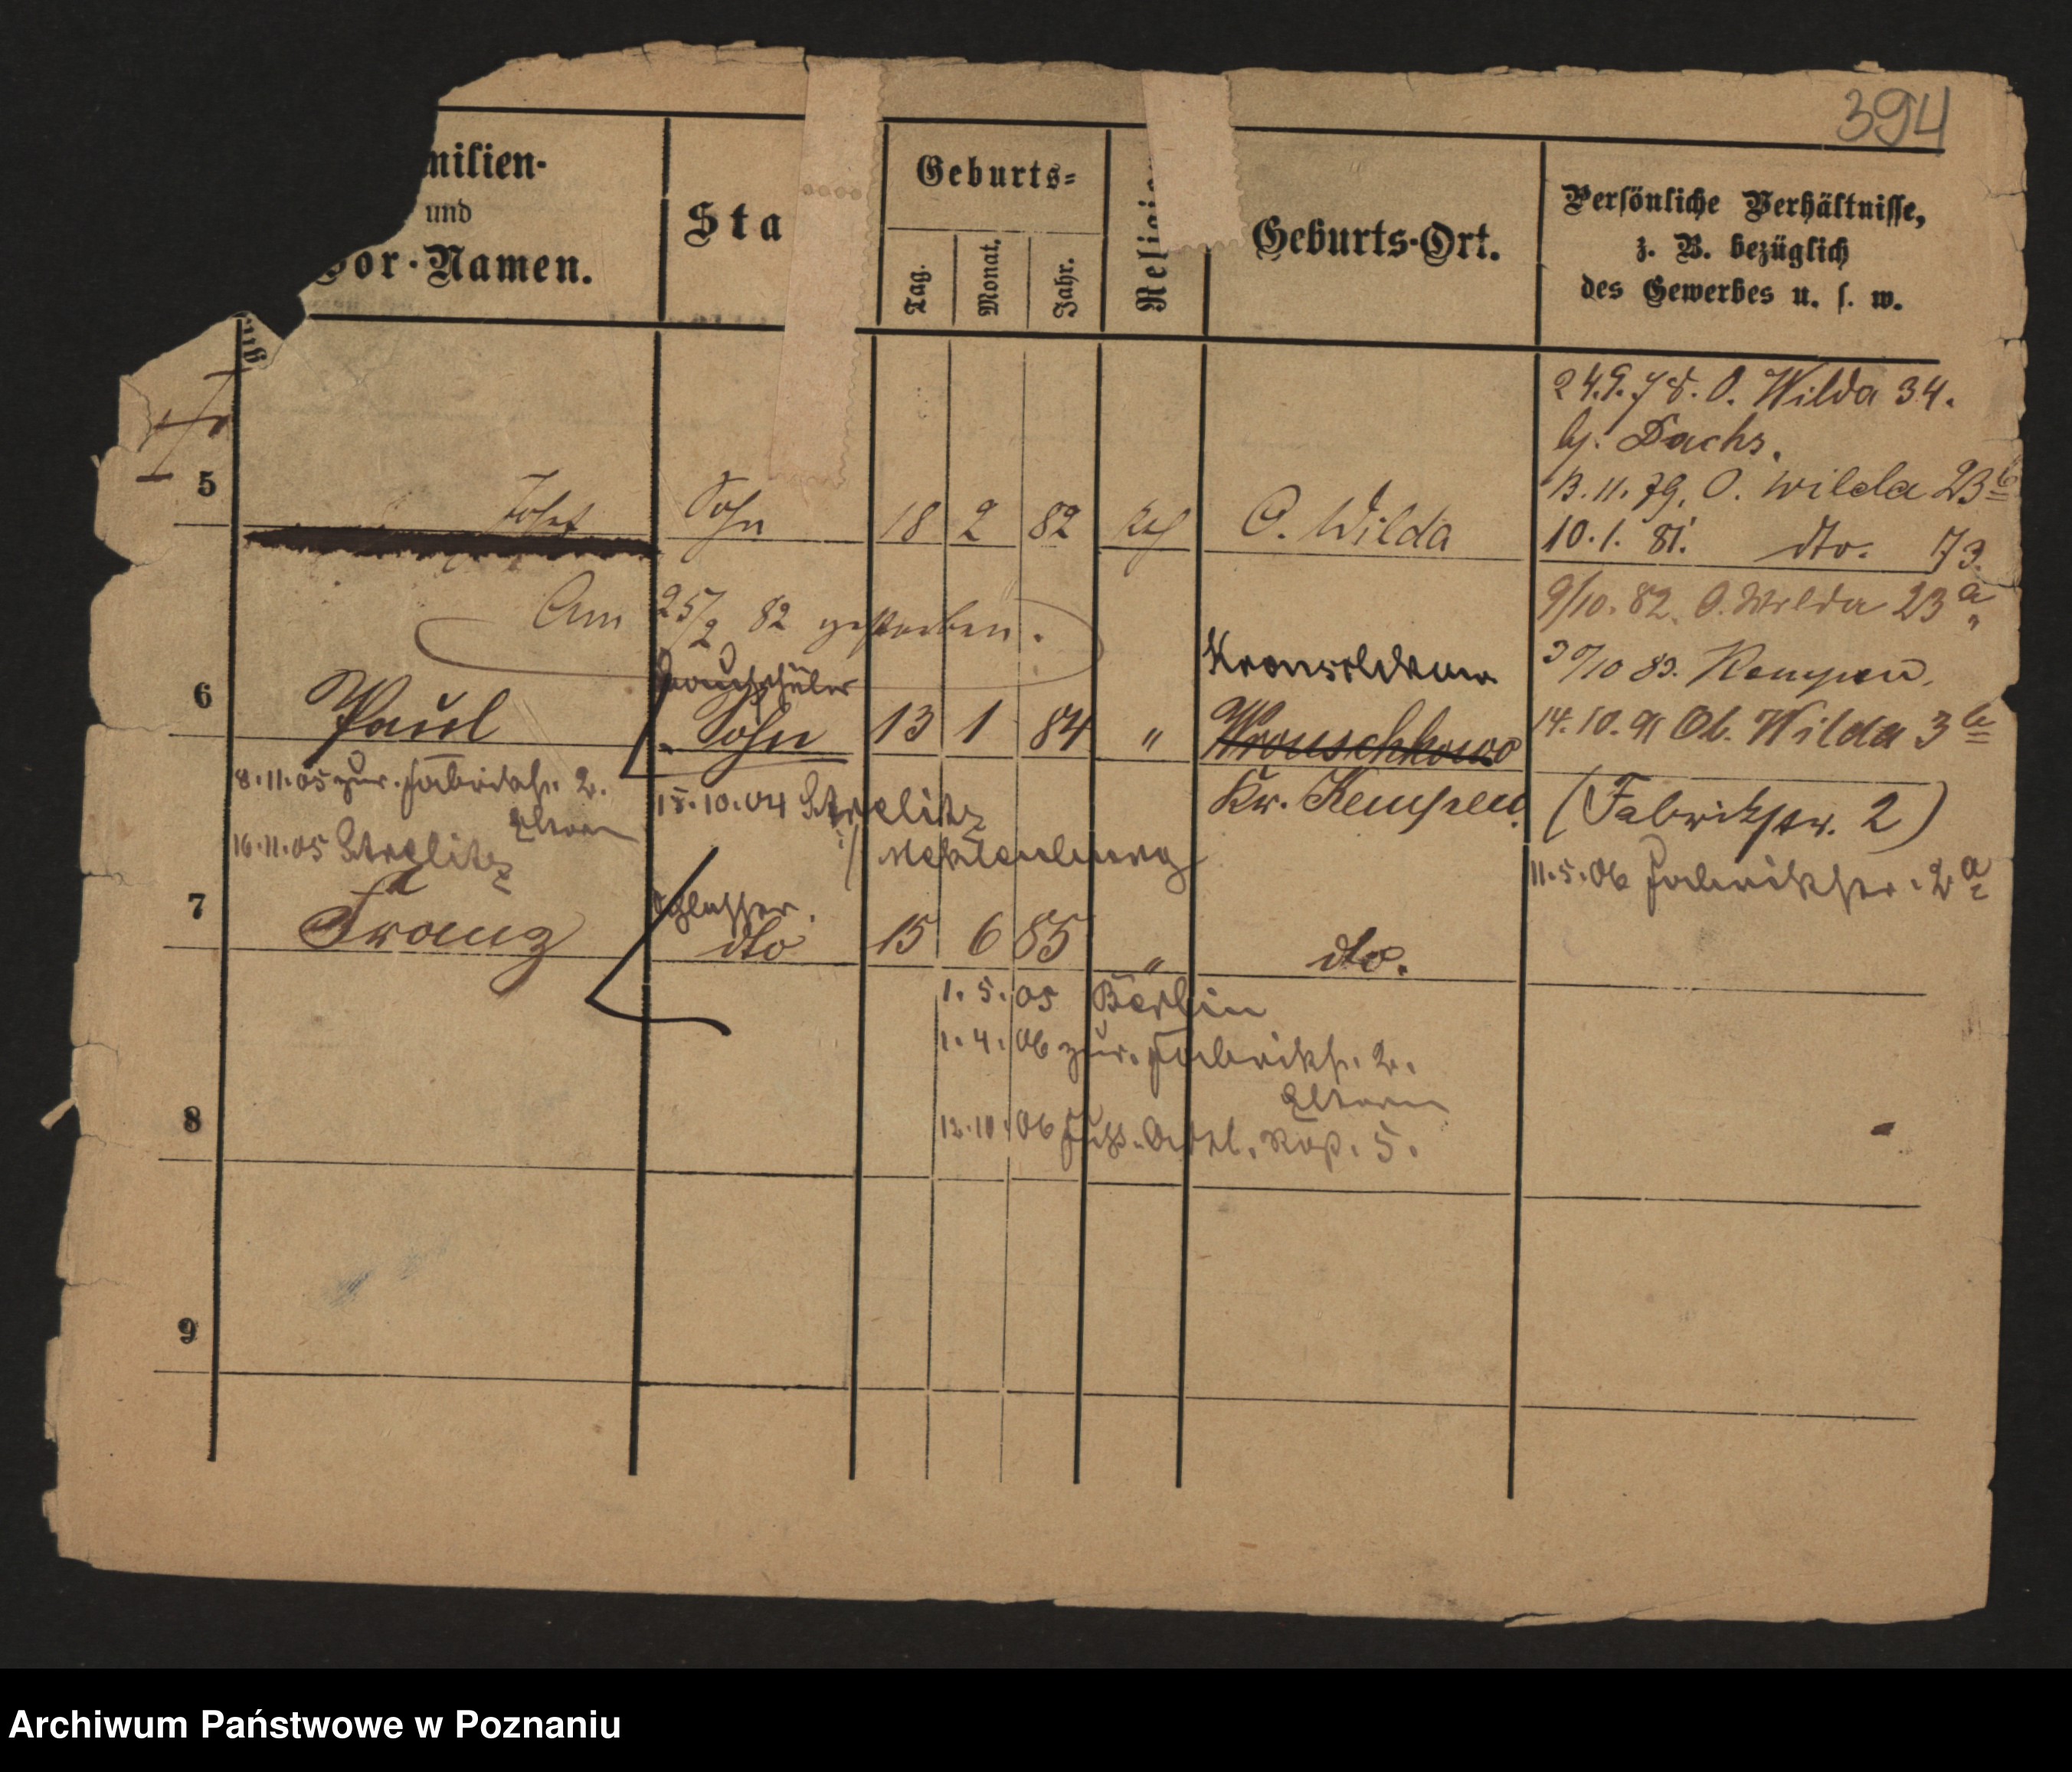 394
milien-
und
Vor-Namen.
Sta
Geburts-
Tag.
Monat.
Jahr.
Religio
Geburts-Ort.
Persönliche Verhältnisse,
z. B. bezüglich
des Gewerbes u. s. w.
24.9.78. O. Wilda 34.
bj. Dachs.
13.11.79. O. Wilda 23b
10.1.81. dto. 73.
5 Sohn 18 2 82 O. Wilda
Am 25/2 82 gestorben.
9/10.82. O. Wilda 23a
30/10 83. Kempen.
6 Paul Bauschüler
Sohn 13 1 84 "
Wronschkowo
Kr. Kempen.
14.10.91 Ob. Wilda 3b
(Fabrikstr. 2)
11.5.06 Fabrikstr. 2a
8.11.05 zur. Fabrikstr. 2.
Eltern
16.11.05 Strelitz
15.10.04 Strelitz
i/ Meklenburg
7 Franz Schlosser.
dto 15 6 85 " dto.
1.5.05 Berlin
1.4.06 zur. Fabrikstr. 2.
Eltern
12.10.06 Fuß-Artl. Rgt. 5.
8
9
Archiwum Państwowe w Poznaniu